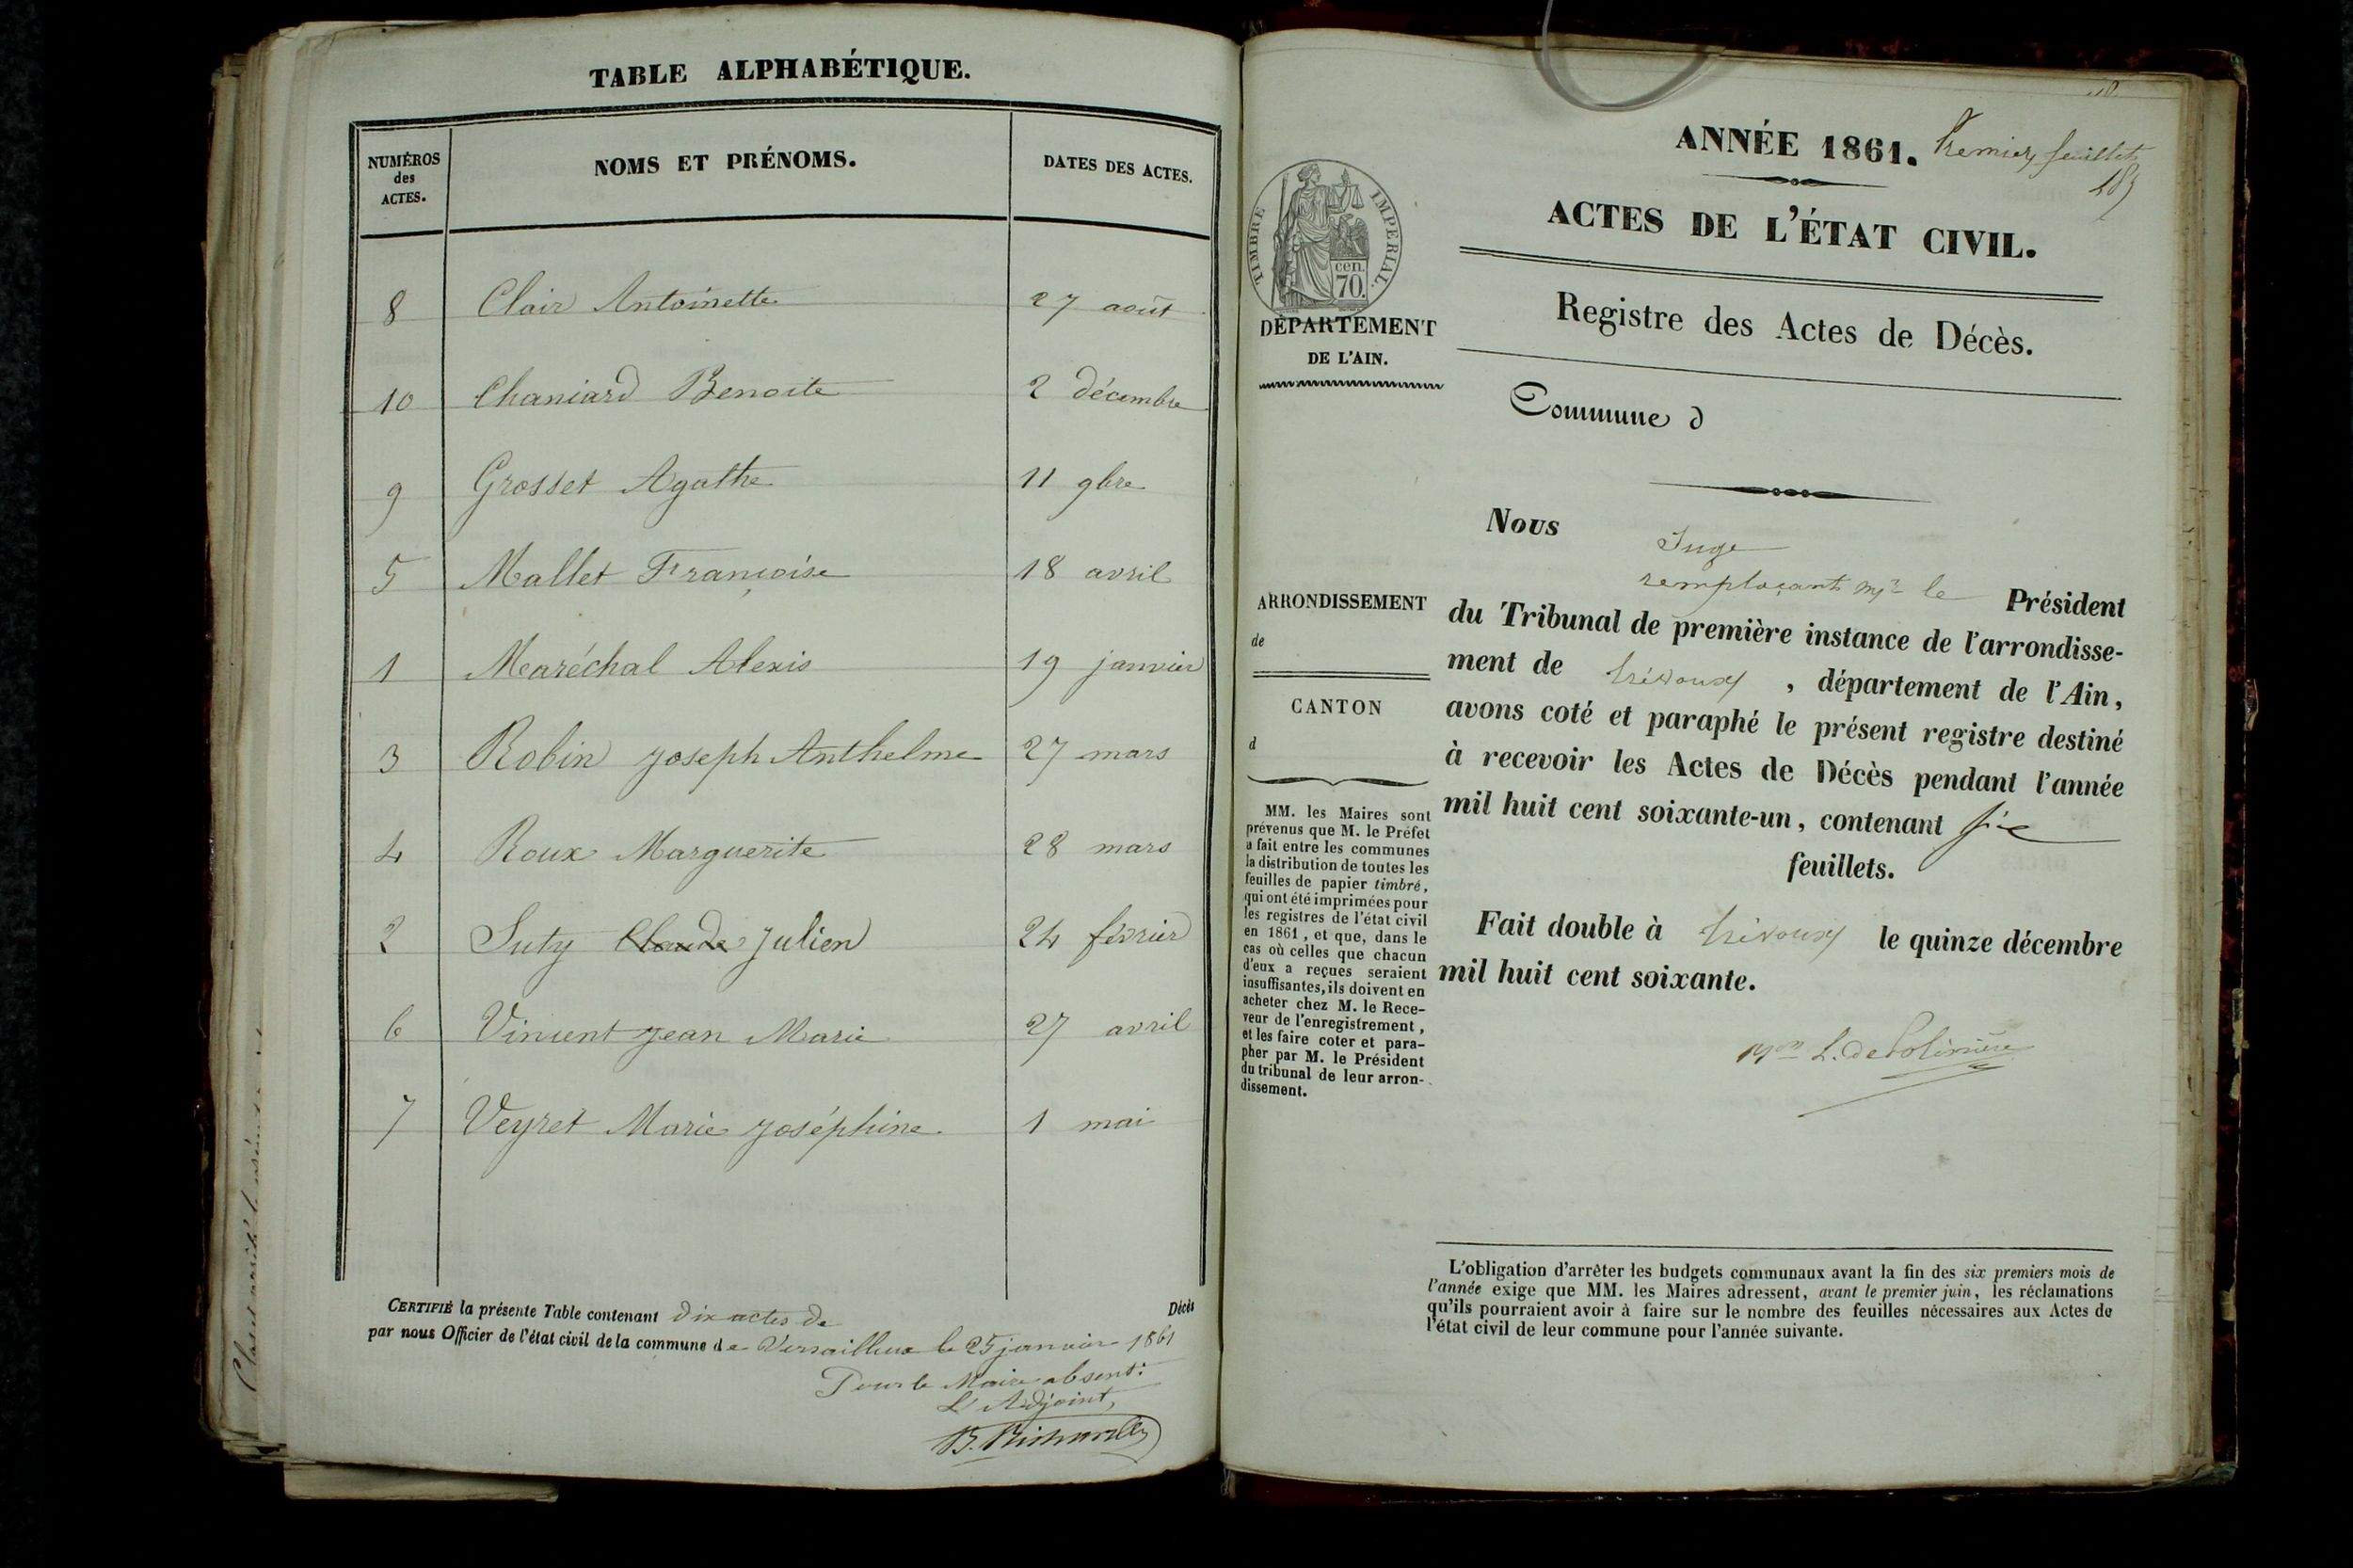 TABLE ALPHABÉTIQUE.
NUMÉROS
des
ACTES.
NOMS ET PRÉNOMS.
DATES DES ACTES.
8 Clair Antoinette 27 août
10 Chaniard Benoite 2 décembre
9 Grosset Agathe 11 9bre
5 Mallet Françoise 18 avril
1 Maréchal Alexis 19 janvier
3 Robin Joseph Anthelme 27 mars
4 Roux Marguerite 28 mars
2 Suty Claude Julien 24 février
6 Vincent Jean Marie 27 avril
7 Veyret Marie Joséphine 1 mai
CERTIFIÉ la présente Table contenant dix actes de Décès
par nous Officier de l'état civil de la commune de Versailleux le 25 janvier 1861
Pour le Maire absent:
L'Adjoint,
ANNÉE 1861. Premier feuillet
ACTES DE L'ÉTAT CIVIL.
TIMBRE IMPERIAL.
cen.
70.
DÉPARTEMENT
DE L'AIN.
Registre des Actes de Décès.
Commune d
Nous
Juge
remplaçant Mr le Président
du Tribunal de première instance de l'arrondisse-
ment de Trévoux, département de l'Ain,
avons coté et paraphé le présent registre destiné
à recevoir les Actes de Décès pendant l'année
mil huit cent soixante-un, contenant six
feuillets.
Fait double à Trévoux le quinze décembre
mil huit cent soixante.
ARRONDISSEMENT
de
CANTON
d
MM. les Maires sont
prévenus que M. le Préfet
a fait entre les communes
la distribution de toutes les
feuilles de papier timbré,
qui ont été imprimées pour
les registres de l'état civil
en 1861, et que, dans le
cas où celles que chacun
d'eux a reçues seraient
insuffisantes, ils doivent en
acheter chez M. le Rece-
veur de l'enregistrement,
et les faire coter et para-
pher par M. le Président
du tribunal de leur arron-
dissement.
L'obligation d'arrêter les budgets communaux avant la fin des six premiers mois de
l'année exige que MM. les Maires adressent, avant le premier juin, les réclamations
qu'ils pourraient avoir à faire sur le nombre des feuilles nécessaires aux Actes de
l'état civil de leur commune pour l'année suivante.